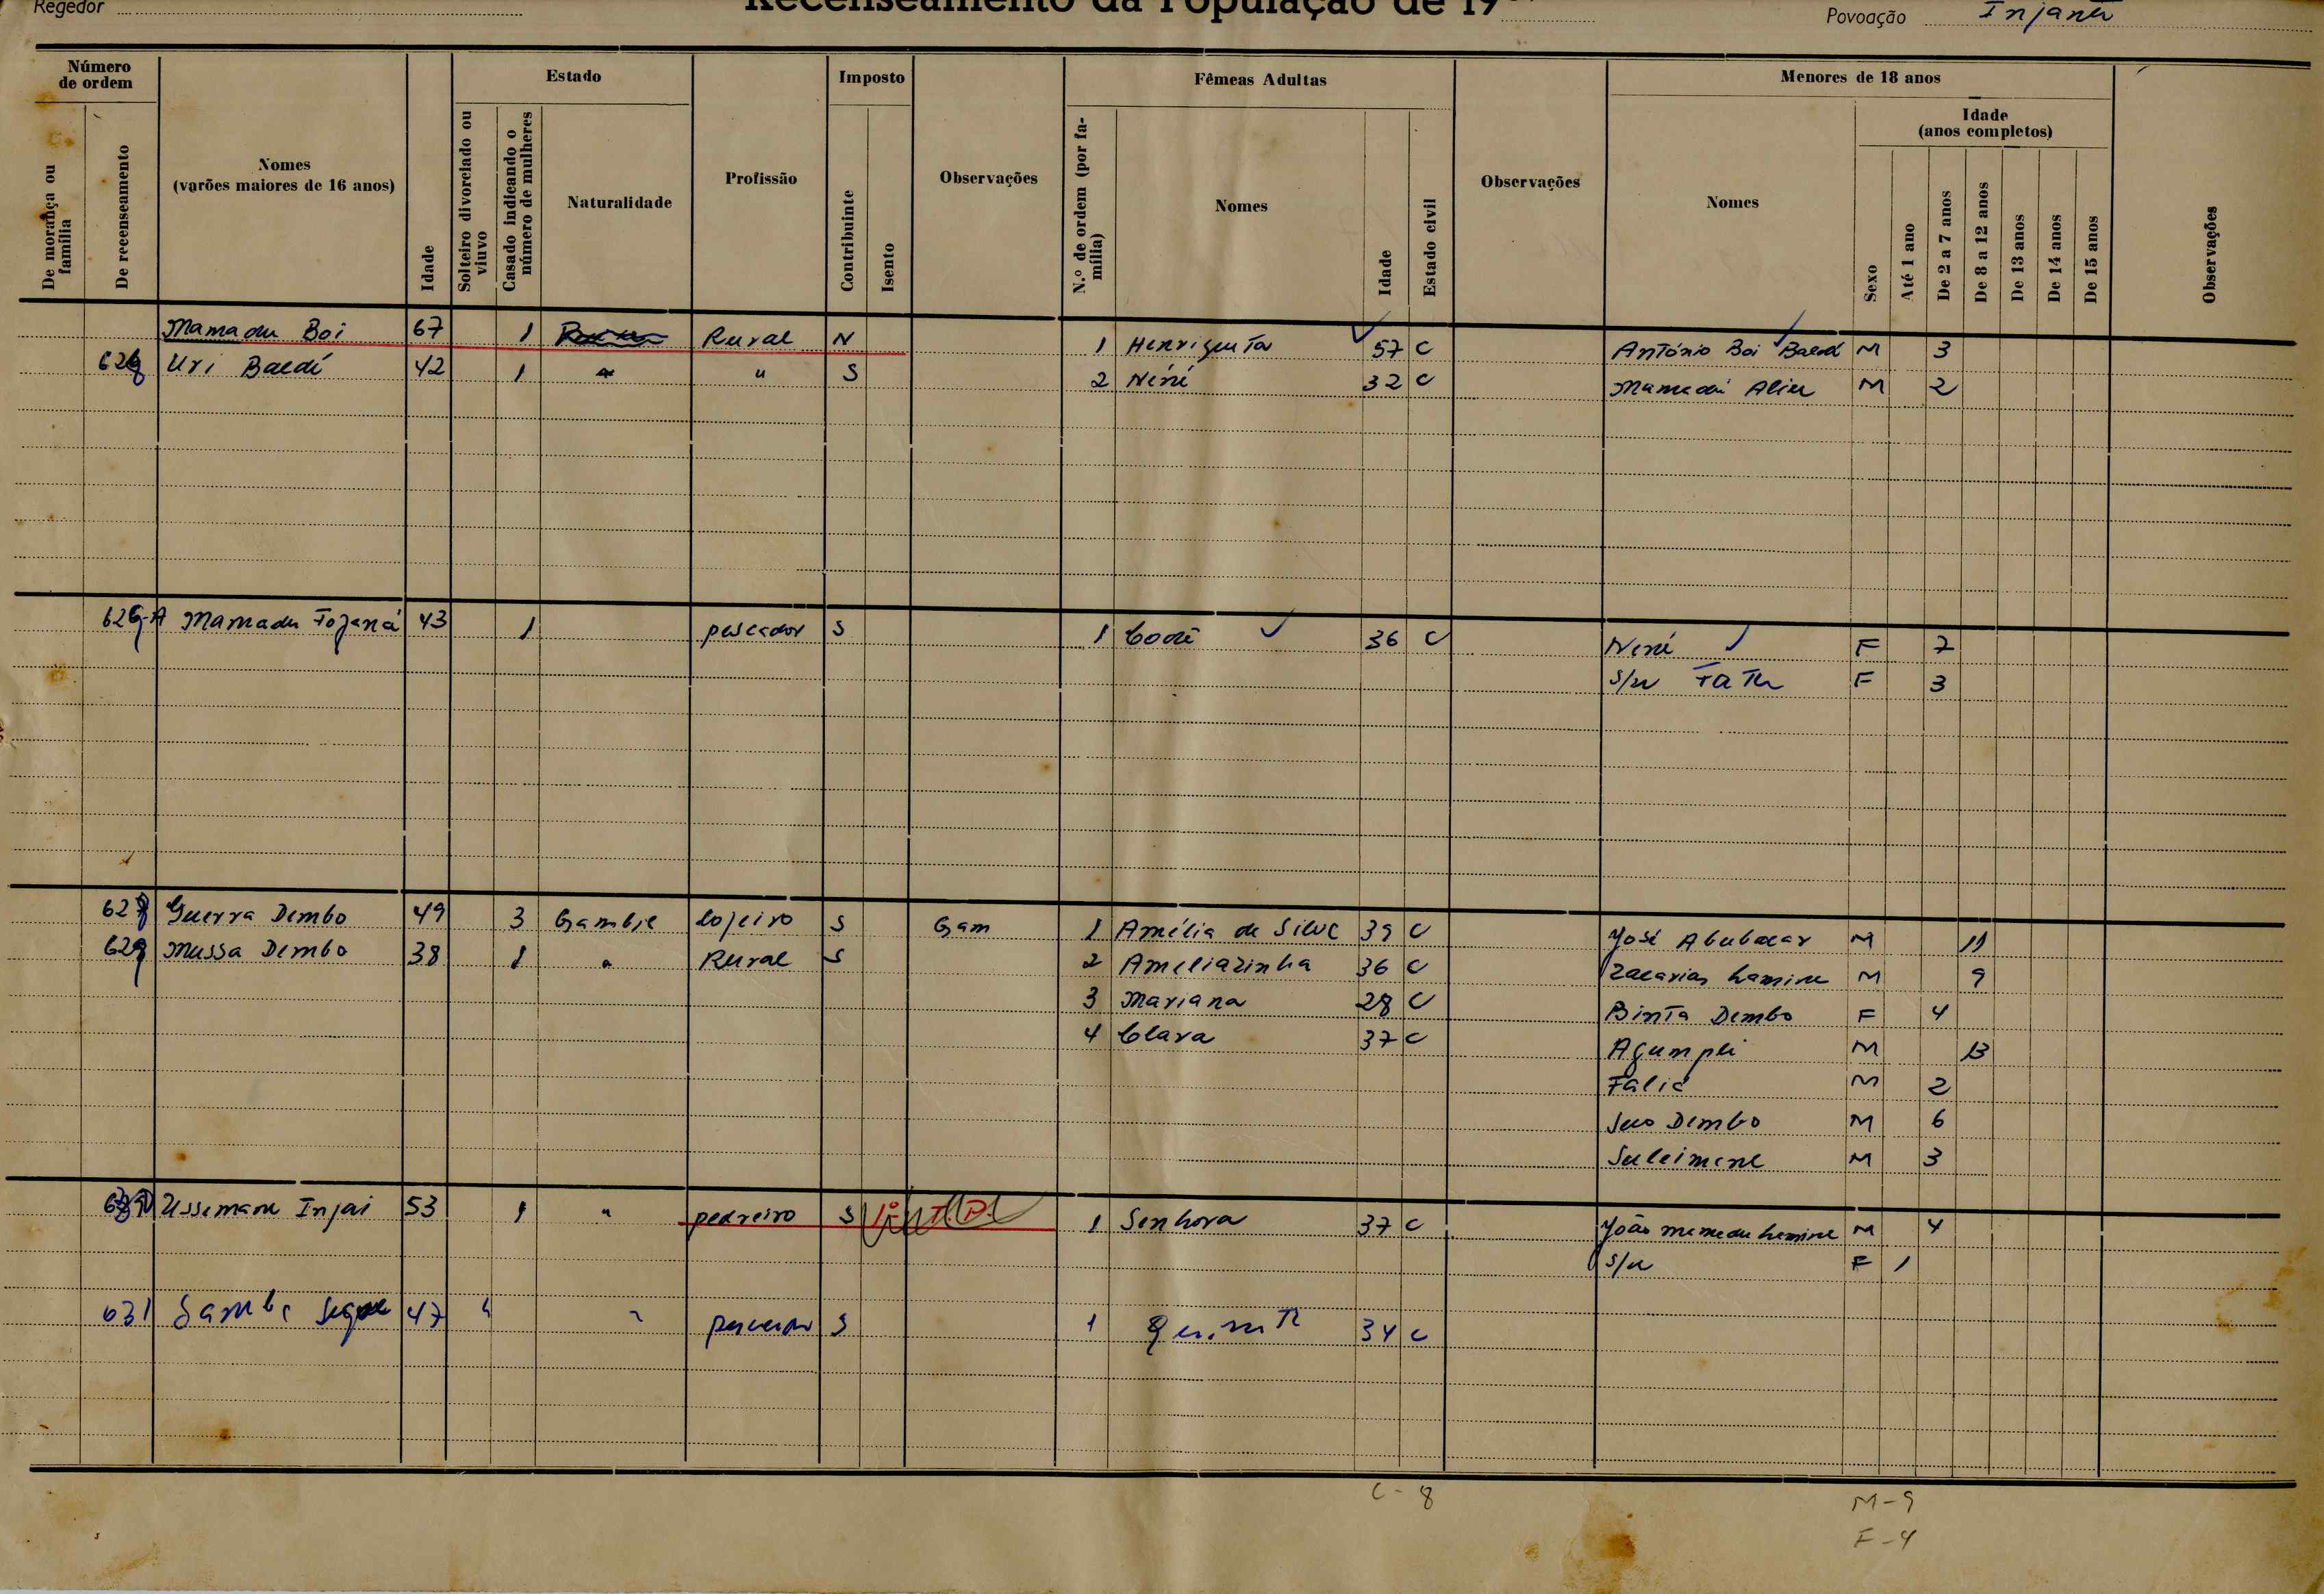 Regedor
Recenseamento da População de 19
Povoação Injantr
Número de ordem
De morança ou família
De recenseamento
Nomes (varões maiores de 16 anos)
Idade
Estado
Solteiro divorciado ou viuvo
Casado indicando o número de mulheres
Naturalidade
Profissão
Imposto
Contribuinte
Isento
Observações
Fêmeas Adultas
N.º de ordem (por família)
Nomes
Idade
Estado civil
Observações
Menores de 18 anos
Nomes
Sexo
Idade (anos completos)
Até 1 ano
De 2 a 7 anos
De 8 a 12 anos
De 13 anos
De 14 anos
De 15 anos
Observações
Mamadu Boi 67 1 Rural N 1 Henriqueta 57 C António Boi Baldé M 3
Uri Baldé 42 1 " " S 2 Néné 32 C Mamadú Aliu M 2
Mamadu 43 1 pescador S 1 36 C Nené F 7
S/n F 3
Guerra Dembo 49 3 Gambie lojeiro S Gam 1 Amélia da Silva 39 C José Abubacar M 11
Mussa Dembo 38 1 " Rural S 2 Ameliazinha 36 C Zacarias Lamine M 9
3 Mariana 28 C Binta Dembo F 4
4 Clara 37 C M 13
M 2
Dembo M 6
Suleimane M 3
Ussumane Injai 53 1 " pedreiro S 1 Senhora 37 C João Mamadu Lamine M 4
S/n F 1
631 47 " " pescador S 1 34 C
C - 8
M - 9
F - 4